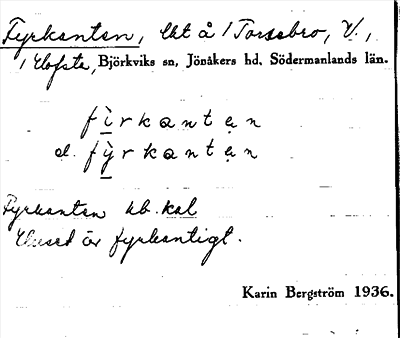 Fyrkanten, lht å 1 Torsebro, V.,
1 Hofsta, Björkviks sn, Jönåkers hd, Södermanlands län.
fi̱rkantẹn
el. fy̱rkantẹn
Fyrkanten kb. kal
Huset är fyrkantigt.
Karin Bergström 1936.